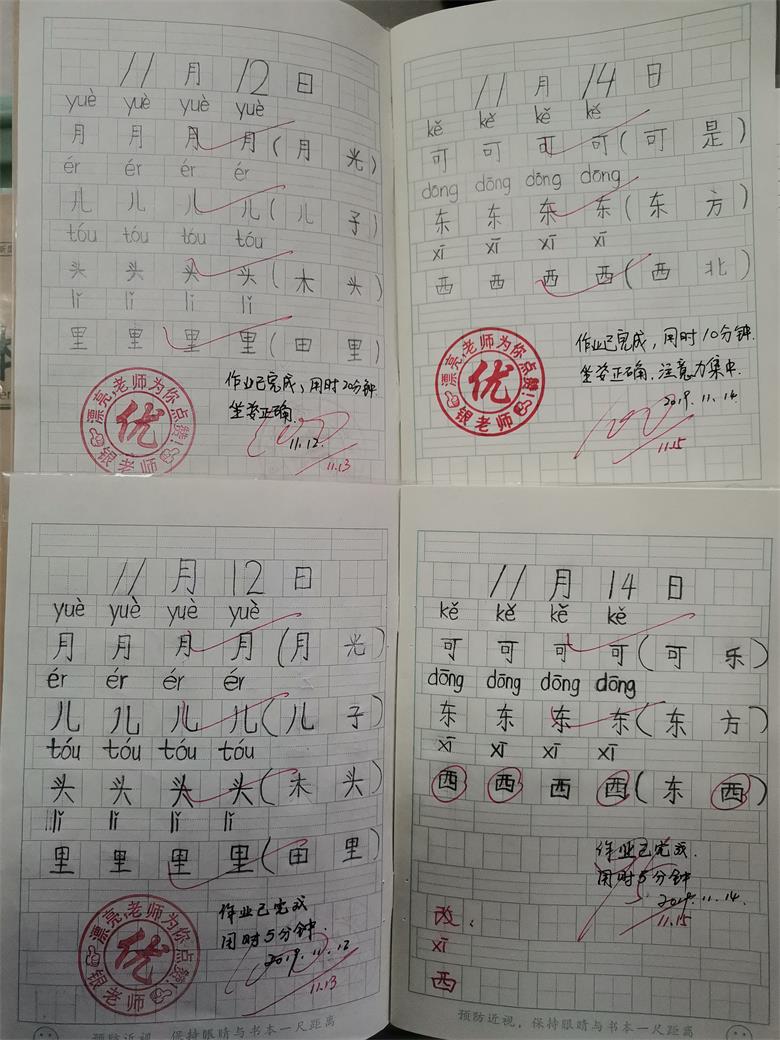 11月12日
yuè yuè yuè yuè
月 月 月 月(月光)
ér ér ér ér
儿 儿 儿 儿(儿子)
tóu tóu tóu tóu
头 头 头 头(木头)
lǐ lǐ lǐ lǐ
里 里 里 里(田里)
作业已完成,用时20分钟.
坐姿正确.
11.12.
11.13
漂亮,老师为你点赞!
优
银老师
11月14日
kě kě kě kě
可 可 可 可(可是)
dōng dōng dōng dōng
东 东 东 东(东方)
xī xī xī xī
西 西 西 西(西北)
作业已完成,用时10分钟.
坐姿正确.注意力集中.
2019.11.14
11.15
漂亮,老师为你点赞!
优
银老师
11月12日
yuè yuè yuè yuè
月 月 月 月(月光)
ér ér ér ér
儿 儿 儿 儿(儿子)
tóu tóu tóu tóu
头 头 头 头(木头)
lǐ lǐ lǐ lǐ
里 里 里 里(田里)
作业已完成
用时5分钟.
2019.11.12
11.13
漂亮,老师为你点赞!
优
银老师
预防近视,保持眼睛与书本一尺距离
11月14日
kě kě kě kě
可 可 可 可(可乐)
dōng dōng dōng dōng
东 东 东 东(东方)
xī xī xī xī
西 西 西 西(东西)
作业已完成.
用时5分钟
2019.11.14.
11.15
改:
xī
西
预防近视,保持眼睛与书本一尺距离